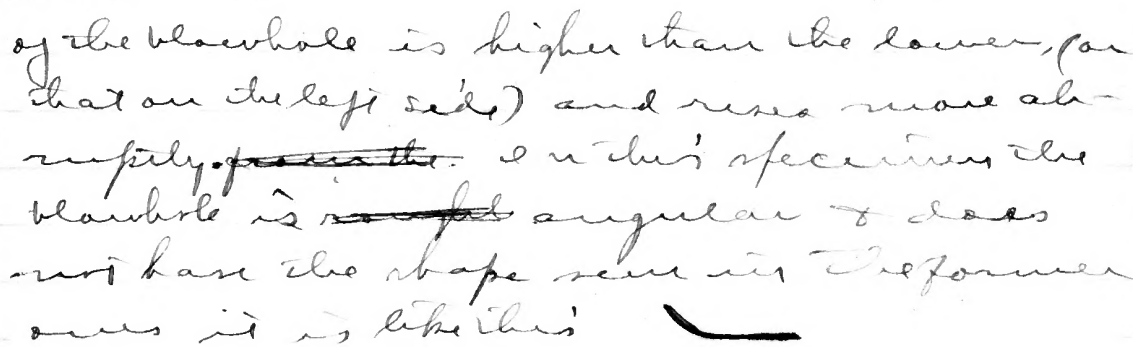 of the blowhole is higher than the lower, (or
that on the left side) and rises more ab-
ruptly. from the. In this specimen the
blowhole is angular & does
not have the shape seen in the former
ones it is like this